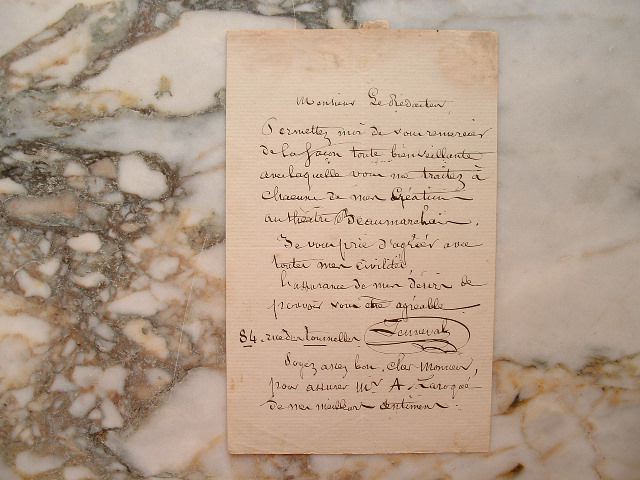 Monsieur Le Rédacteur,
Permettez moi de vous remercier
de la façon toute bienveillante
avec laquelle vous me traitez à
chacune de mes Créations
au théâtre Beaumarchais.
Je vous prie d'agréer avec
toutes mes civilités,
l'assurance de mon désir de
pouvoir vous être agréable.
84, rue des tournelles
Soyez assez bon, cher Monsieur,
pour assurer Mr A
de mes meilleurs sentiments.